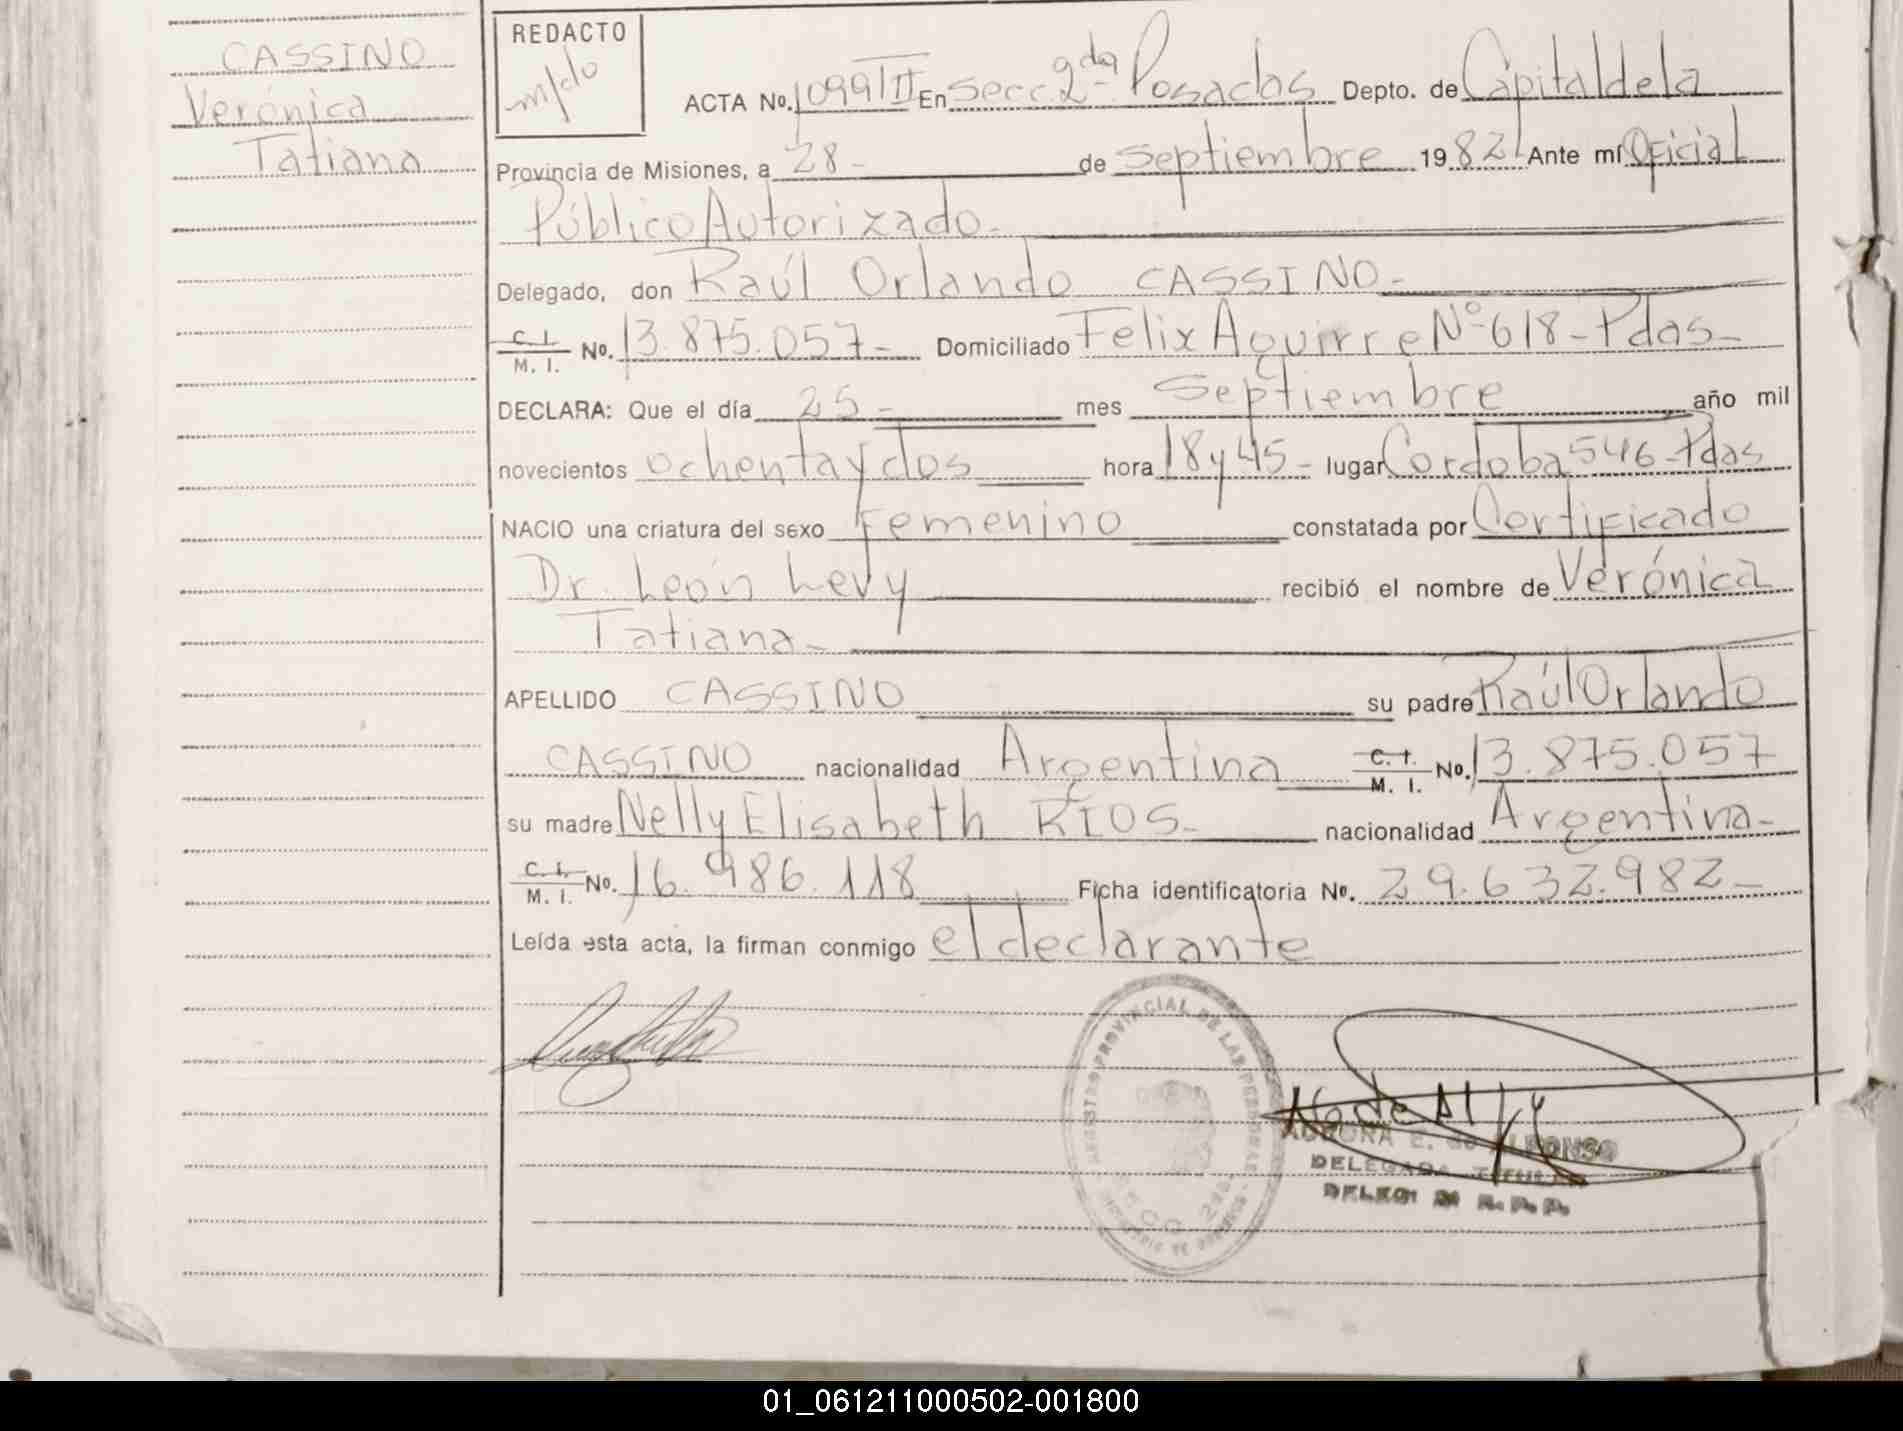 CASSINO
Verónica
Tatiana
REDACTO
m/do
ACTA No. 1099/II En Secc. 2da. Posadas Depto. de Capital de la
Provincia de Misiones, a 28- de Septiembre 1982 Ante mí Oficial
Público Autorizado-
Delegado, don Raúl Orlando CASSINO-
C. I. M. I. No. 13.875.057- Domiciliado Felix Aguirre Nº 618-Pdas-
DECLARA: Que el día 25- mes Septiembre año mil
novecientos ochenta y dos hora 18 y 45- lugar Cordoba 546-Pdas
NACIO una criatura del sexo Femenino constatada por Certificado
Dr. León Levy recibió el nombre de Verónica
Tatiana-
APELLIDO CASSINO su padre Raúl Orlando
CASSINO nacionalidad Argentina C. I. M. I. No. 13.875.057
su madre Nelly Elisabeth RIOS- nacionalidad Argentina-
C. I. M. I. No. 16.986.118 Ficha identificatoria No. 29.632.982-
Leída esta acta, la firman conmigo el declarante
REGISTRO PROVINCIAL DE LAS PERSONAS
SECC 2da
AURORA E. de ALFONSO
DELEGADA TITULAR
R.P.P.
01_061211000502-001800